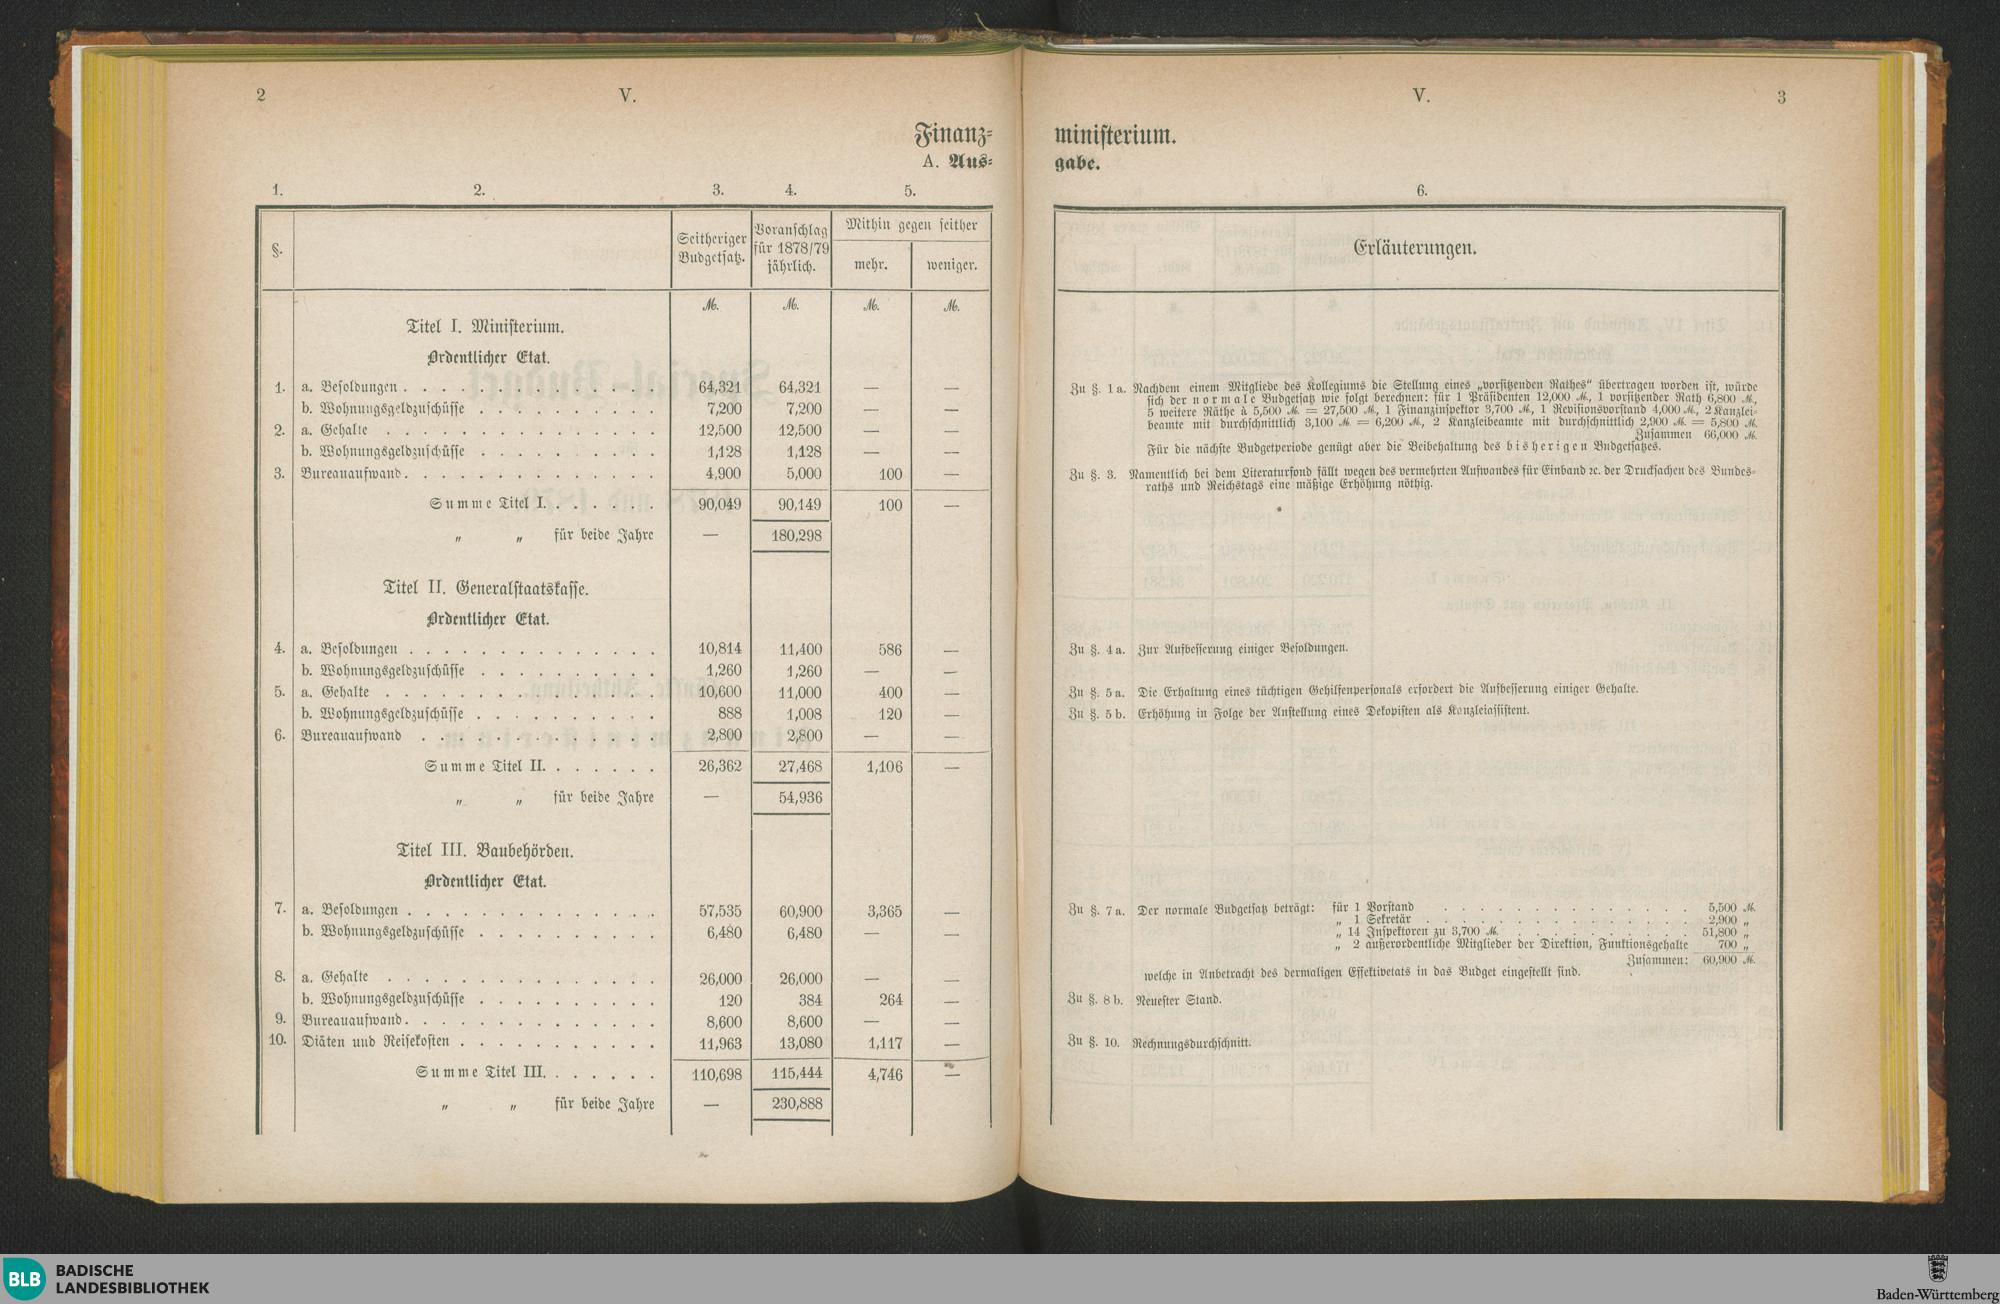 2 V.
Finanz-
A. Aus-
1. 2. 3. 4. 5.
§. Seitheriger Budgetsatz. Voranschlag für 1878/79 jährlich. Mithin gegen seither
mehr. weniger.
ℳ. ℳ. ℳ. ℳ.
Titel I. Ministerium.
Ordentlicher Etat.
1. a. Besoldungen . . . . 64,321 64,321 — —
b. Wohnungsgeldzuschüsse . . . . 7,200 7,200 — —
2. a. Gehalte . . . . 12,500 12,500 — —
b. Wohnungsgeldzuschüsse . . . . 1,128 1,128 — —
3. Bureauaufwand . . . . 4,900 5,000 100 —
Summe Titel I. . . . . 90,049 90,149 100 —
„ „ für beide Jahre — 180,298
Titel II. Generalstaatskasse.
Ordentlicher Etat.
4. a. Besoldungen . . . . 10,814 11,400 586 —
b. Wohnungsgeldzuschüsse . . . . 1,260 1,260 — —
5. a. Gehalte . . . . 10,600 11,000 400 —
b. Wohnungsgeldzuschüsse . . . . 888 1,008 120 —
6. Bureauaufwand . . . . 2,800 2,800 — —
Summe Titel II. . . . . 26,362 27,468 1,106 —
„ „ für beide Jahre — 54,936
Titel III. Baubehörden.
Ordentlicher Etat.
7. a. Besoldungen . . . . 57,535 60,900 3,365 —
b. Wohnungsgeldzuschüsse . . . . 6,480 6,480 — —
8. a. Gehalte . . . . 26,000 26,000 — —
b. Wohnungsgeldzuschüsse . . . . 120 384 264 —
9. Bureauaufwand . . . . 8,600 8,600 — —
10. Diäten und Reisekosten . . . . 11,963 13,080 1,117 —
Summe Titel III. . . . . 110,698 115,444 4,746 —
„ „ für beide Jahre — 230,888
V. 3
ministerium.
gabe.
6.
Erläuterungen.
Zu §. 1 a. Nachdem einem Mitgliede des Kollegiums die Stellung eines „vorsitzenden Rathes“ übertragen worden ist, würde
sich der normale Budgetsatz wie folgt berechnen: für 1 Präsidenten 12,000 ℳ., 1 vorsitzender Rath 6,800 ℳ.,
5 weitere Räthe à 5,500 ℳ. = 27,500 ℳ., 1 Finanzinspektor 3,700 ℳ., 1 Revisionsvorstand 4,000 ℳ., 2 Kanzlei-
beamte mit durchschnittlich 3,100 ℳ. = 6,200 ℳ., 2 Kanzleibeamte mit durchschnittlich 2,900 ℳ. = 5,800 ℳ.
Zusammen 66,000 ℳ.
Für die nächste Budgetperiode genügt aber die Beibehaltung des bisherigen Budgetsatzes.
Zu §. 3. Namentlich bei dem Literaturfond fällt wegen des vermehrten Aufwandes für Einband ꝛc. der Drucksachen des Bundes-
raths und Reichstags eine mäßige Erhöhung nöthig.
Zu §. 4 a. Zur Aufbesserung einiger Besoldungen.
Zu §. 5 a. Die Erhaltung eines tüchtigen Gehilfenpersonals erfordert die Aufbesserung einiger Gehalte.
Zu §. 5 b. Erhöhung in Folge der Anstellung eines Dekopisten als Kanzleiassistent.
Zu §. 7 a. Der normale Budgetsatz beträgt: für 1 Vorstand . . . . 5,500 ℳ.
„ 1 Sekretär . . . . 2,900 „
„ 14 Inspektoren zu 3,700 ℳ. . . . . 51,800 „
„ 2 außerordentliche Mitglieder der Direktion, Funktionsgehalte 700 „
Zusammen: 60,900 ℳ.
welche in Anbetracht des dermaligen Effektivetats in das Budget eingestellt sind.
Zu §. 8 b. Neuester Stand.
Zu §. 10. Rechnungsdurchschnitt.
BLB BADISCHE
LANDESBIBLIOTHEK
Baden-Württemberg